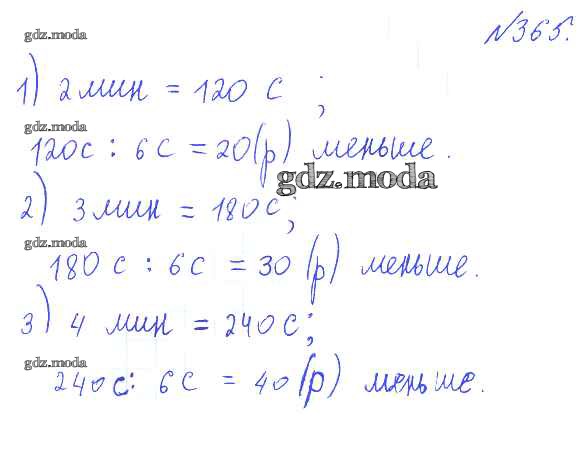 gdz.moda
№365.
1) 2 мин = 120 с ;
gdz.moda
120с : 6с = 20(р) меньше.
gdz.moda
2) 3 мин = 180с;
gdz.moda
180 с : 6с = 30 (р) меньше.
3) 4 мин = 240с;
gdz.moda
240с: 6с = 40(р) меньше.